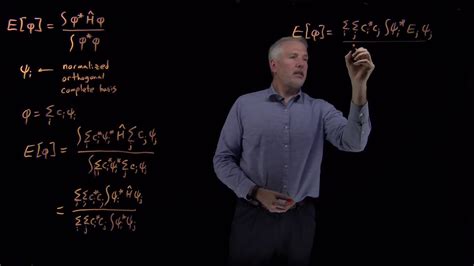 E[φ] = ∫φ* Ĥ φ / ∫φ* φ
ψᵢ ← normalized
orthogonal
complete basis
φ = Σᵢ cᵢ ψᵢ
E[φ] = ∫Σᵢ cᵢ* ψᵢ* Ĥ Σⱼ cⱼ ψⱼ / ∫Σᵢ cᵢ* ψᵢ* Σⱼ cⱼ ψⱼ
= Σᵢ Σⱼ cᵢ* cⱼ ∫ψᵢ* Ĥ ψⱼ / Σᵢ Σⱼ cᵢ* cⱼ ∫ψᵢ* ψⱼ
E[φ] = Σᵢ Σⱼ cᵢ* cⱼ ∫ψᵢ* Eⱼ ψⱼ